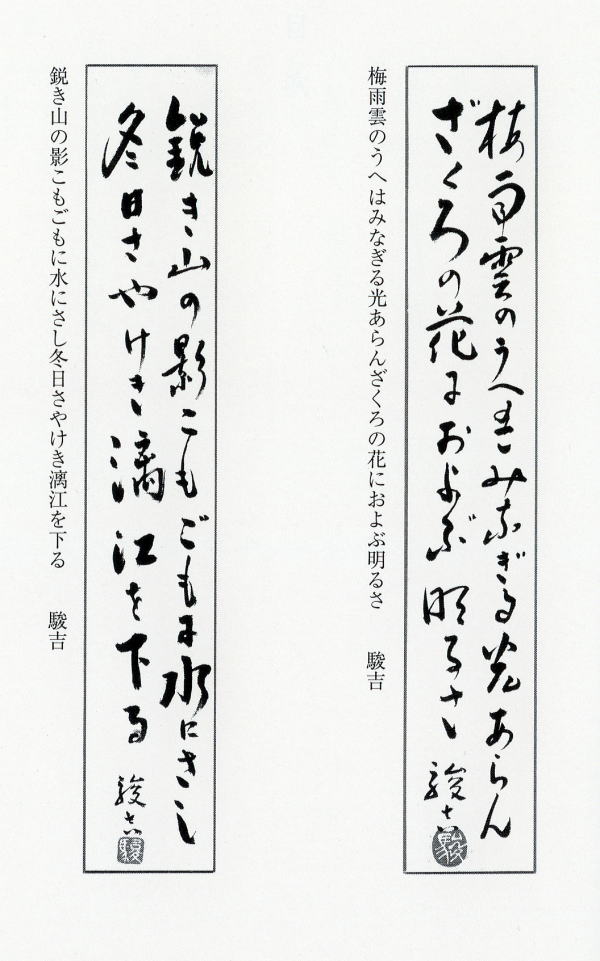 梅雨雲のうへはみなぎる光あらん
ざくろの花におよぶ明るさ
駿吉
駿
梅雨雲のうへはみなぎる光あらんざくろの花におよぶ明るさ　駿吉
鋭き山の影こもごもに水にさし
冬日さやけき漓江を下る
駿吉
駿
鋭き山の影こもごもに水にさし冬日さやけき漓江を下る　駿吉